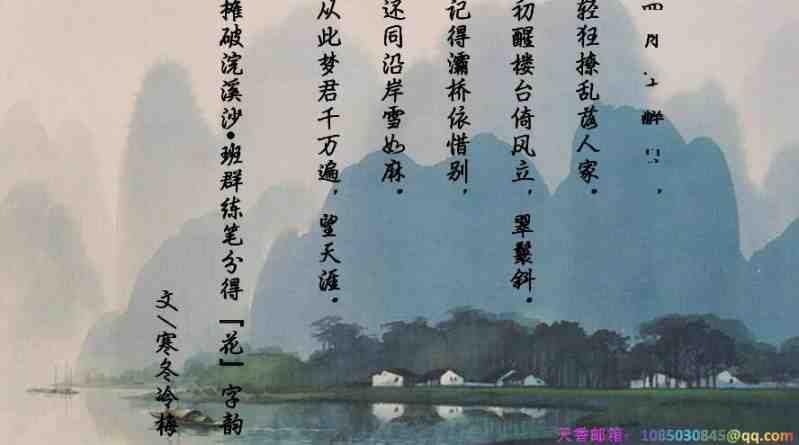 四月
轻狂撩乱落人家。
初醒楼台倚风立，翠鬟斜。
记得灞桥依惜别，
还同沿岸雪如麻。
从此梦君千万遍，望天涯。
摊破浣溪沙•班群练笔分得『花』字韵
文＼寒冬冷梅
天香邮箱：1085030845@qq.com